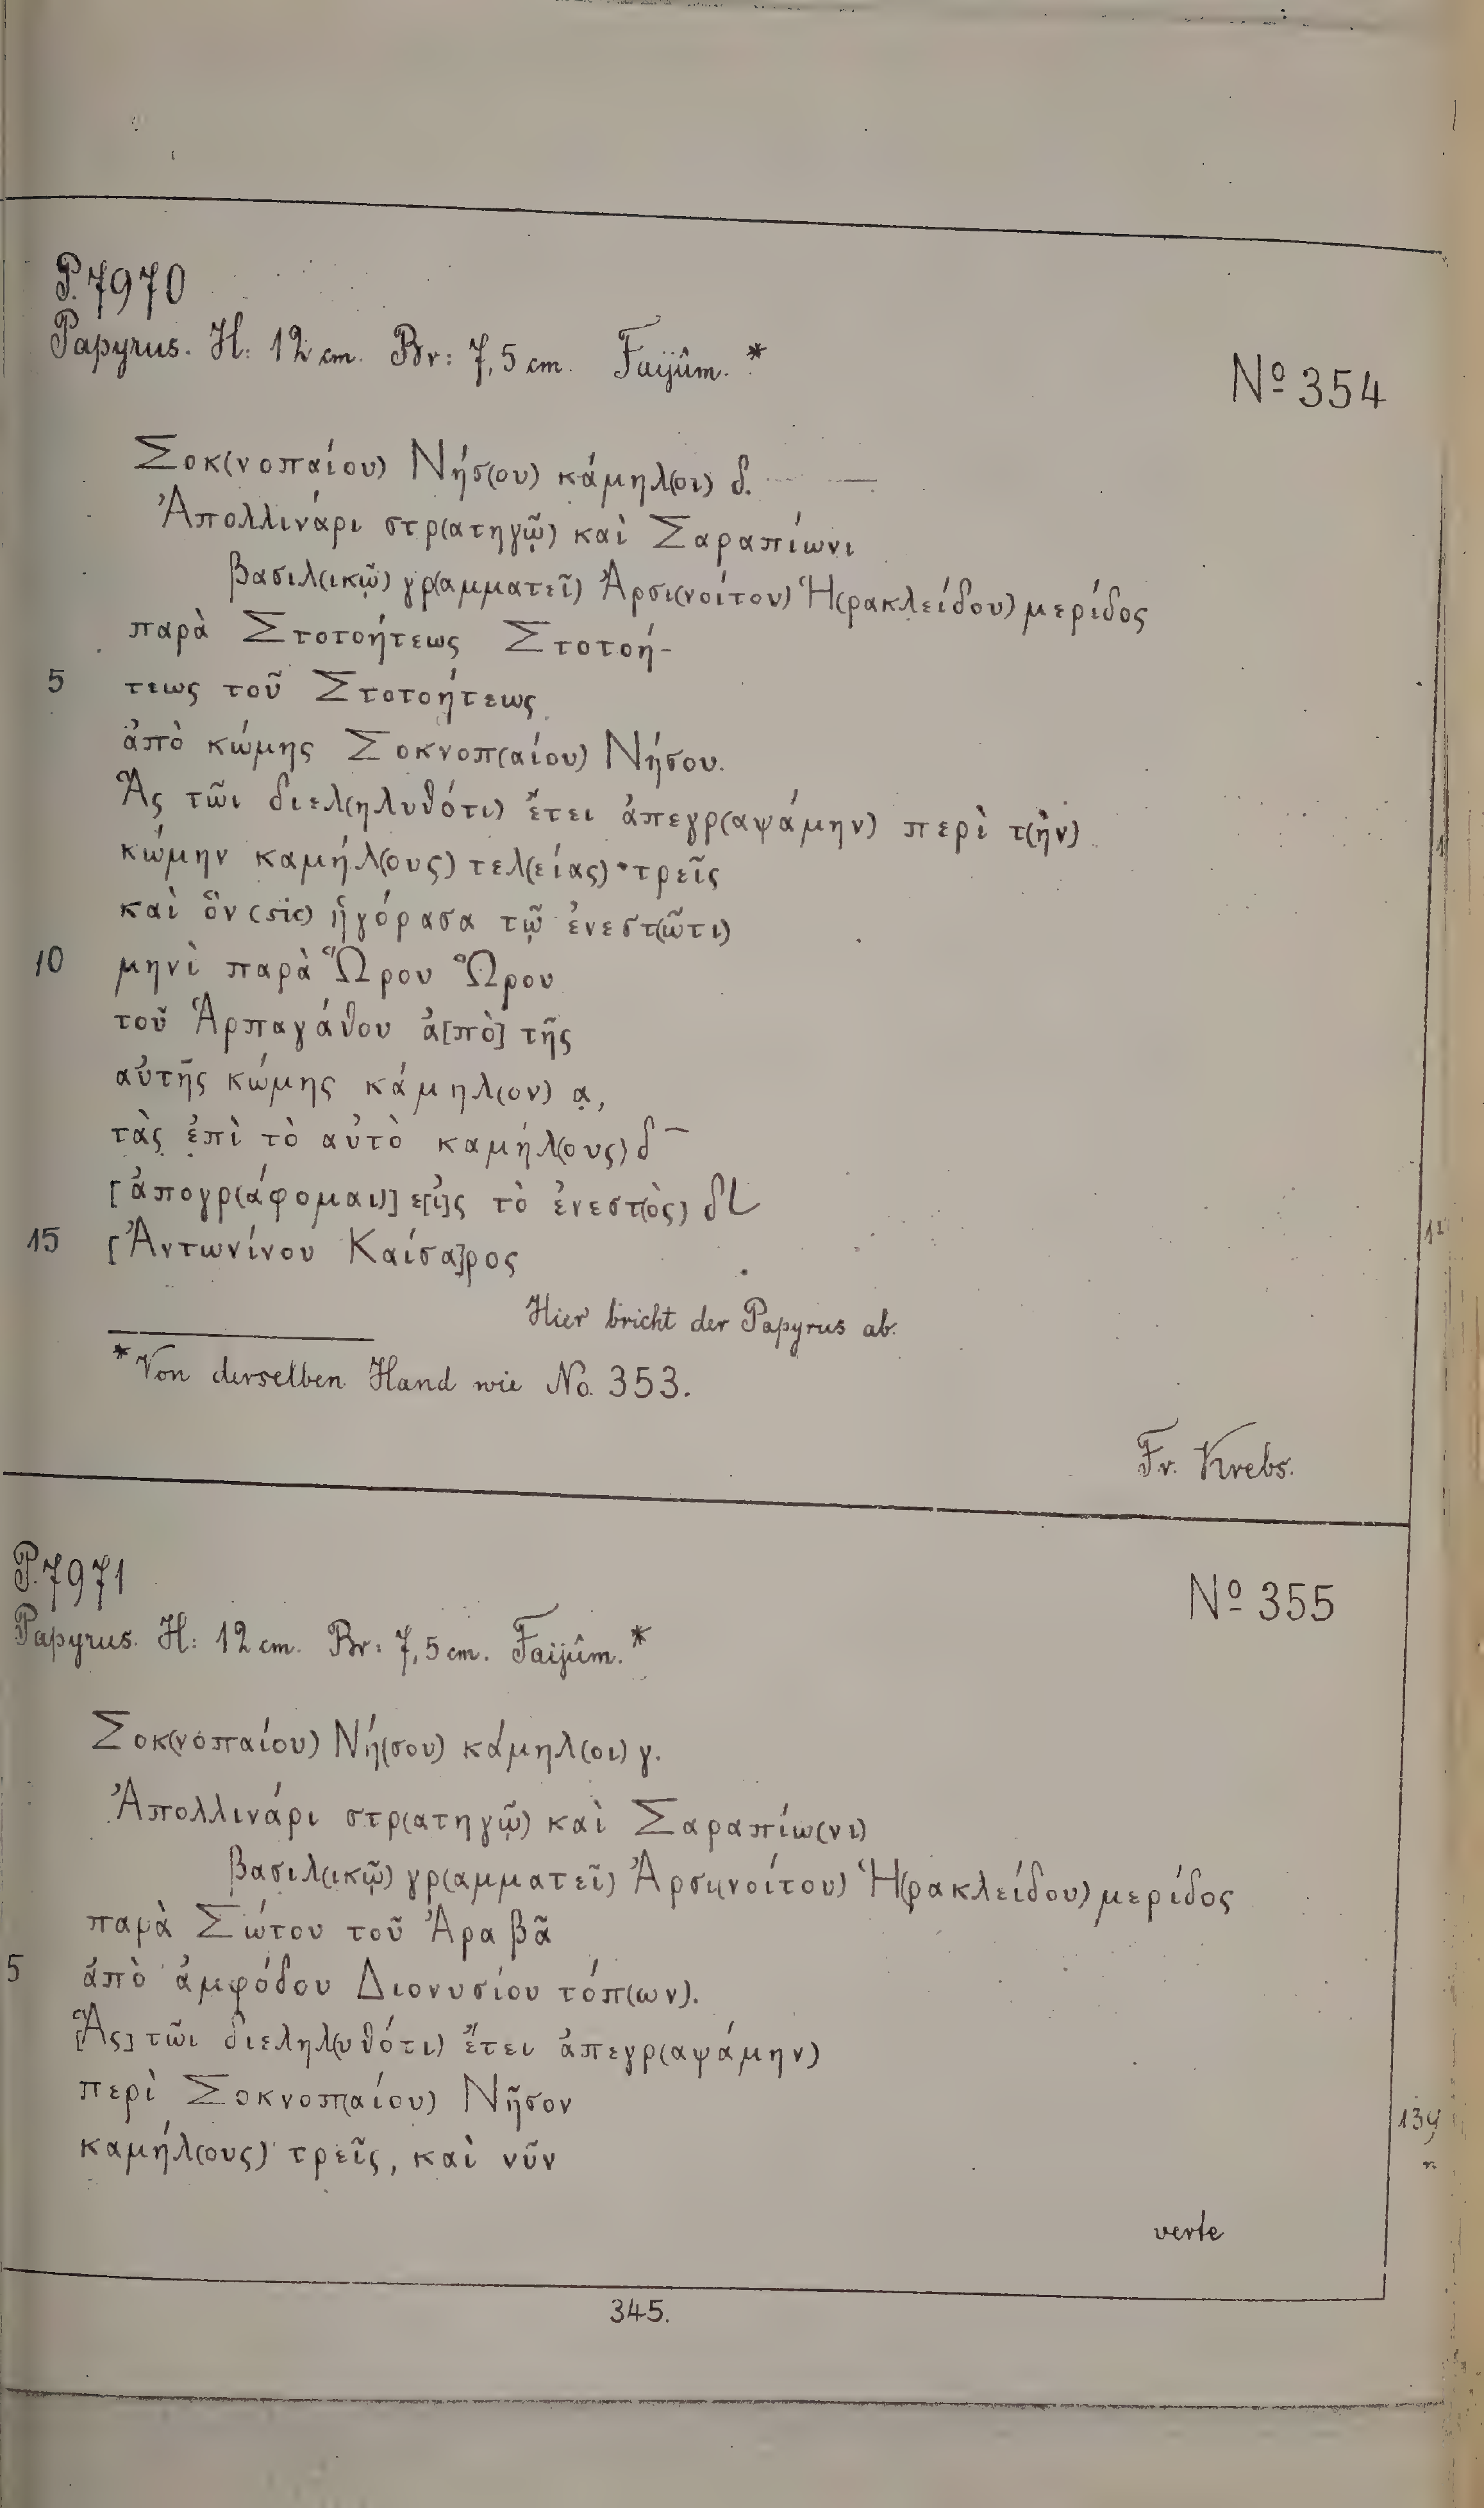 P. 7970
Papyrus. H: 12 cm. Br: 7,5 cm. Faijûm. *
Nº 354
Σοκ(νοπαίου) Νήσ(ου) κάμηλ(οι) δ.
Ἀπολλινάρι στρ(ατηγῷ) καὶ Σαραπίωνι
βασιλ(ικῷ) γρ(αμματεῖ) Ἀρσι(νοίτου) Ἡ(ρακλείδου) μερίδος
παρὰ Στοτοήτεως Στοτοή-
5 τεως τοῦ Στοτοήτεως
ἀπὸ κώμης Σοκνοπ(αίου) Νήσου.
Ἃς τῶι διελ(ηλυθότι) ἔτει ἀπεγρ(αψάμην) περὶ τ(ὴν)
κώμην καμήλ(ους) τελ(είας) τρεῖς
καὶ ὃν (sic) ἠγόρασα τῷ ἐνεστ(ῶτι)
10 μηνὶ παρὰ Ὥρου Ὥρου
τοῦ Ἁρπαγάθου ἀ[πὸ] τῆς
αὐτῆς κώμης κάμηλ(ον) α̣,
τὰς ἐπὶ τὸ αὐτὸ καμήλ(ους) δ –
[ἀπογρ(άφομαι)] ε[ἰ]ς τὸ ἐνεστ(ὸς) δL
15 [Ἀντωνίνου Καίσα]ρος
Hier bricht der Papyrus ab.
* Von derselben Hand wie No. 353.
Fr. Krebs.
P. 7971
Nº 355
Papyrus. H: 12 cm. Br: 7,5 cm. Faijûm. *
Σοκ(νοπαίου) Νή(σου) κάμηλ(οι) γ.
Ἀπολλινάρι στρ(ατηγῷ) καὶ Σαραπίω(νι)
βασιλ(ικῷ) γρ(αμματεῖ) Ἀρσι(νοίτου) Ἡ(ρακλείδου) μερίδος
παρὰ Σώτου τοῦ Ἀραβᾶ
5 ἀπὸ ἀμφόδου Διονυσίου τόπ(ων).
[Ἃς] τῶι διεληλ(υθότι) ἔτει ἀπεγρ(αψάμην)
περὶ Σοκνοπ(αίου) Νῆσον
καμήλ(ους) τρεῖς, καὶ νῦν
verte
345.